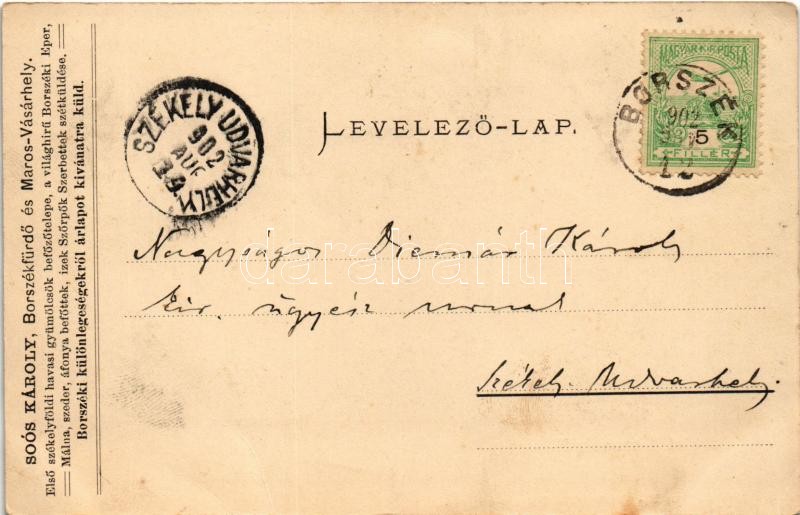 SOÓS KÁROLY, Borszékfürdő és Maros-Vásárhely.
Első székelyföldi havasi gyümölcsök befőzőtelepe, a világhirü Borszéki Eper,
Málna, szeder, áfonya befőttek, izek Szörpök Szerbettek szétküldése.
Borszéki különlegességekről árlapot kivánatra küld.
SZÉKELYUDVARHELY
902
AUG
MAGYAR KIR. POSTA
5
FILLÉR
BORSZÉK
902
LEVELEZŐ-LAP.
Nagyságos Diemár Károly
kir. ügyész urnak
Székely Udvarhely.
darabanth